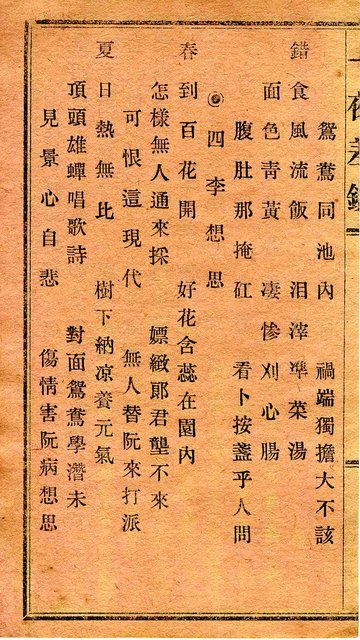 鴛鴦同池內　禍端獨擔大不該
錯食風流飯　泪滓準菜湯
面色靑黃　凄慘刈心腸
腹肚那掩缸　看卜按盞乎人問
◎四李想思
春到百花開　好花含蕊在園內
怎樣無人通來採　嫖緻郎君壟不來
可恨這現代　無人替阮來打派
夏日熱無比　樹下納凉養元氣
頂頭雄蟬唱歌詩　對面鴛鴦學潛未
見景心自悲　傷情害阮病想思